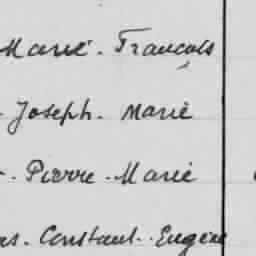 Marie. Francois
Joseph. Marie
Pierre. Marie
Constant. Eugène